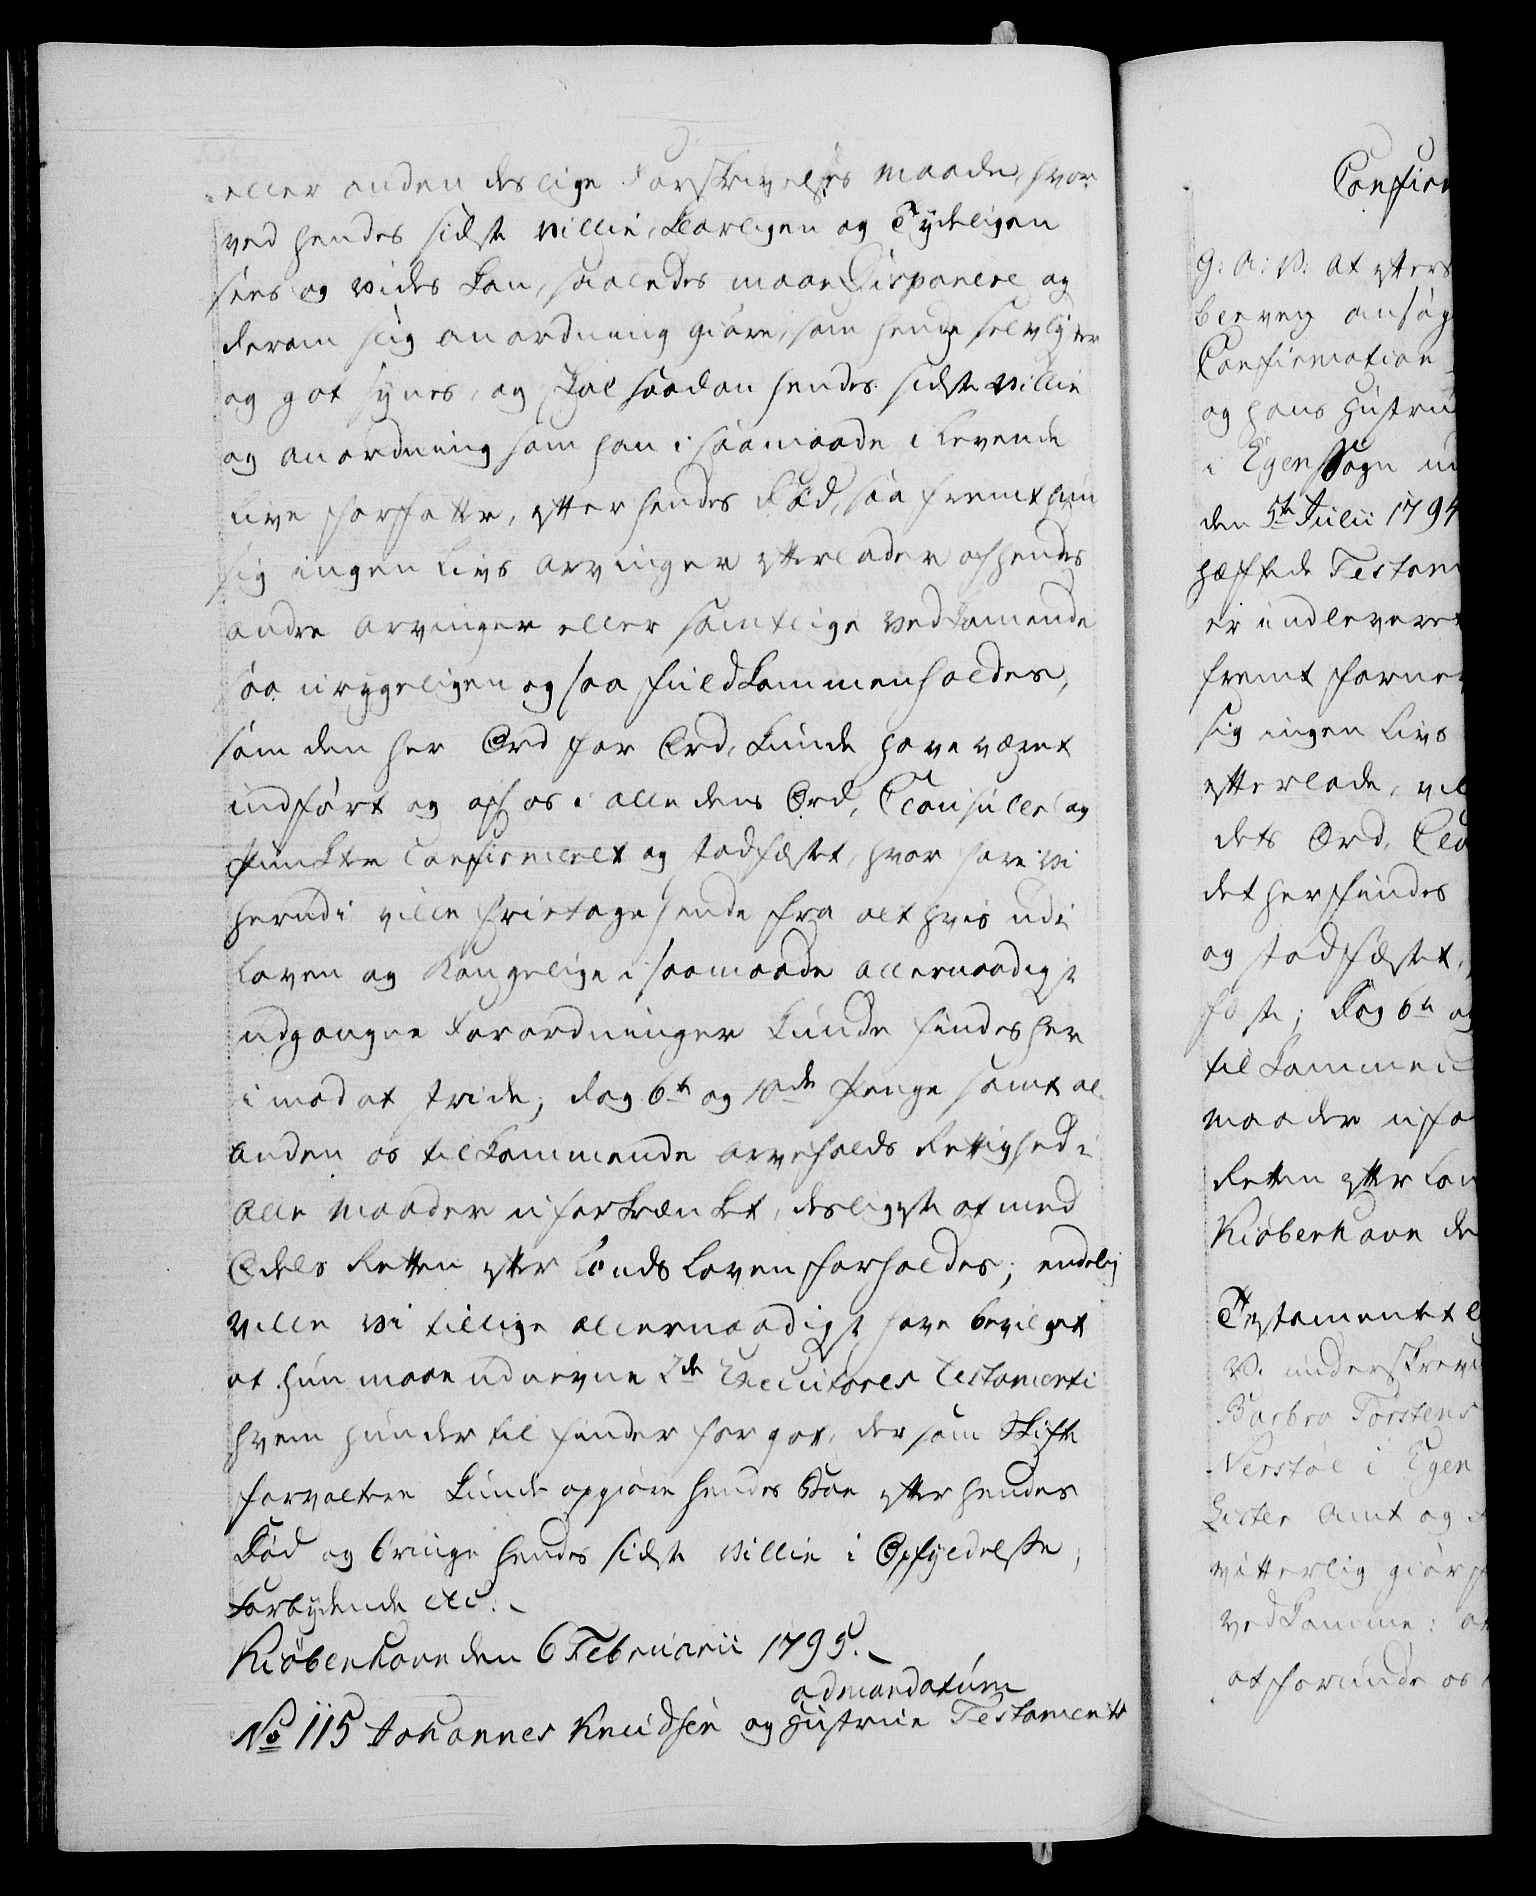 eller anden deslige Forskrivelses maade, hvor
ved hendes sidste villie, klarligen og Tydeligen
sees og vides kan, saaledes maae Disponere og
derom slig anordning giøre, som hende selv lyster
og got synes, og skal saadan hendes sidste villie
og anordning som hun i saamaade i levende
Live forfatter, efter hendes Død, saa fremt hun
sig ingen Livs arvinger efterlader af hendes
andre arvinger eller samtlige vedkommende
saa uryggeligen og saa fuldkommen holdes,
som den her Ord for Ord, kunde have været
indført og af os i alle dens Ord, Clausuller og
puncter Confirmeret og stadfæstet, hvor fore vi
herudi ville frietage hende fra alt hvis udi
Loven og Kongelige i saamaade allernaadigst
udgangne Forordninger kunde findes her
imod at stride; dog 6te og 10de penge samt al
anden os tilkommende arvefalds Rettighed i
alle maader uforkrænket, desligeste at med
Odels Retten efter Lands Loven forholdes; endelig
ville vi tillige allernaadigst have bevilget
at hun maae udnævne 2de Executores Testamenti
hvem hun der til finder for got, der som Skifte
forvaltere kunde opgiøre hendes Boe efter hendes
Død og bringe hendes sidste villie i Opfyldelse;
Forbydende etc.
Kiøbenhavn den 6 Februarii 1795.
ad mandatum
No 115 Johannes Knudsen og Hustrue Testamente
Confirm
G: A: V: at efters
beven ansøg
Confirmation
og hans Hustru
i Egen Sogn ud
den 5te Julii 1794
hæftede Testam
er indleveret
fremt forne
sig ingen Livs
efterlade, vil
dets Ord, Cla
det her findes
og stadfæstet,
fæste; dog 6te og
tilkommend
maader ufo
Retten efter Lan
Kiøbenhavn de
Testamentet l
V. underskrev
Barbro Torstens
Nerstøl i Egen
Lister Amt og
vitterlig giør
vedkomme: at
at forunde os